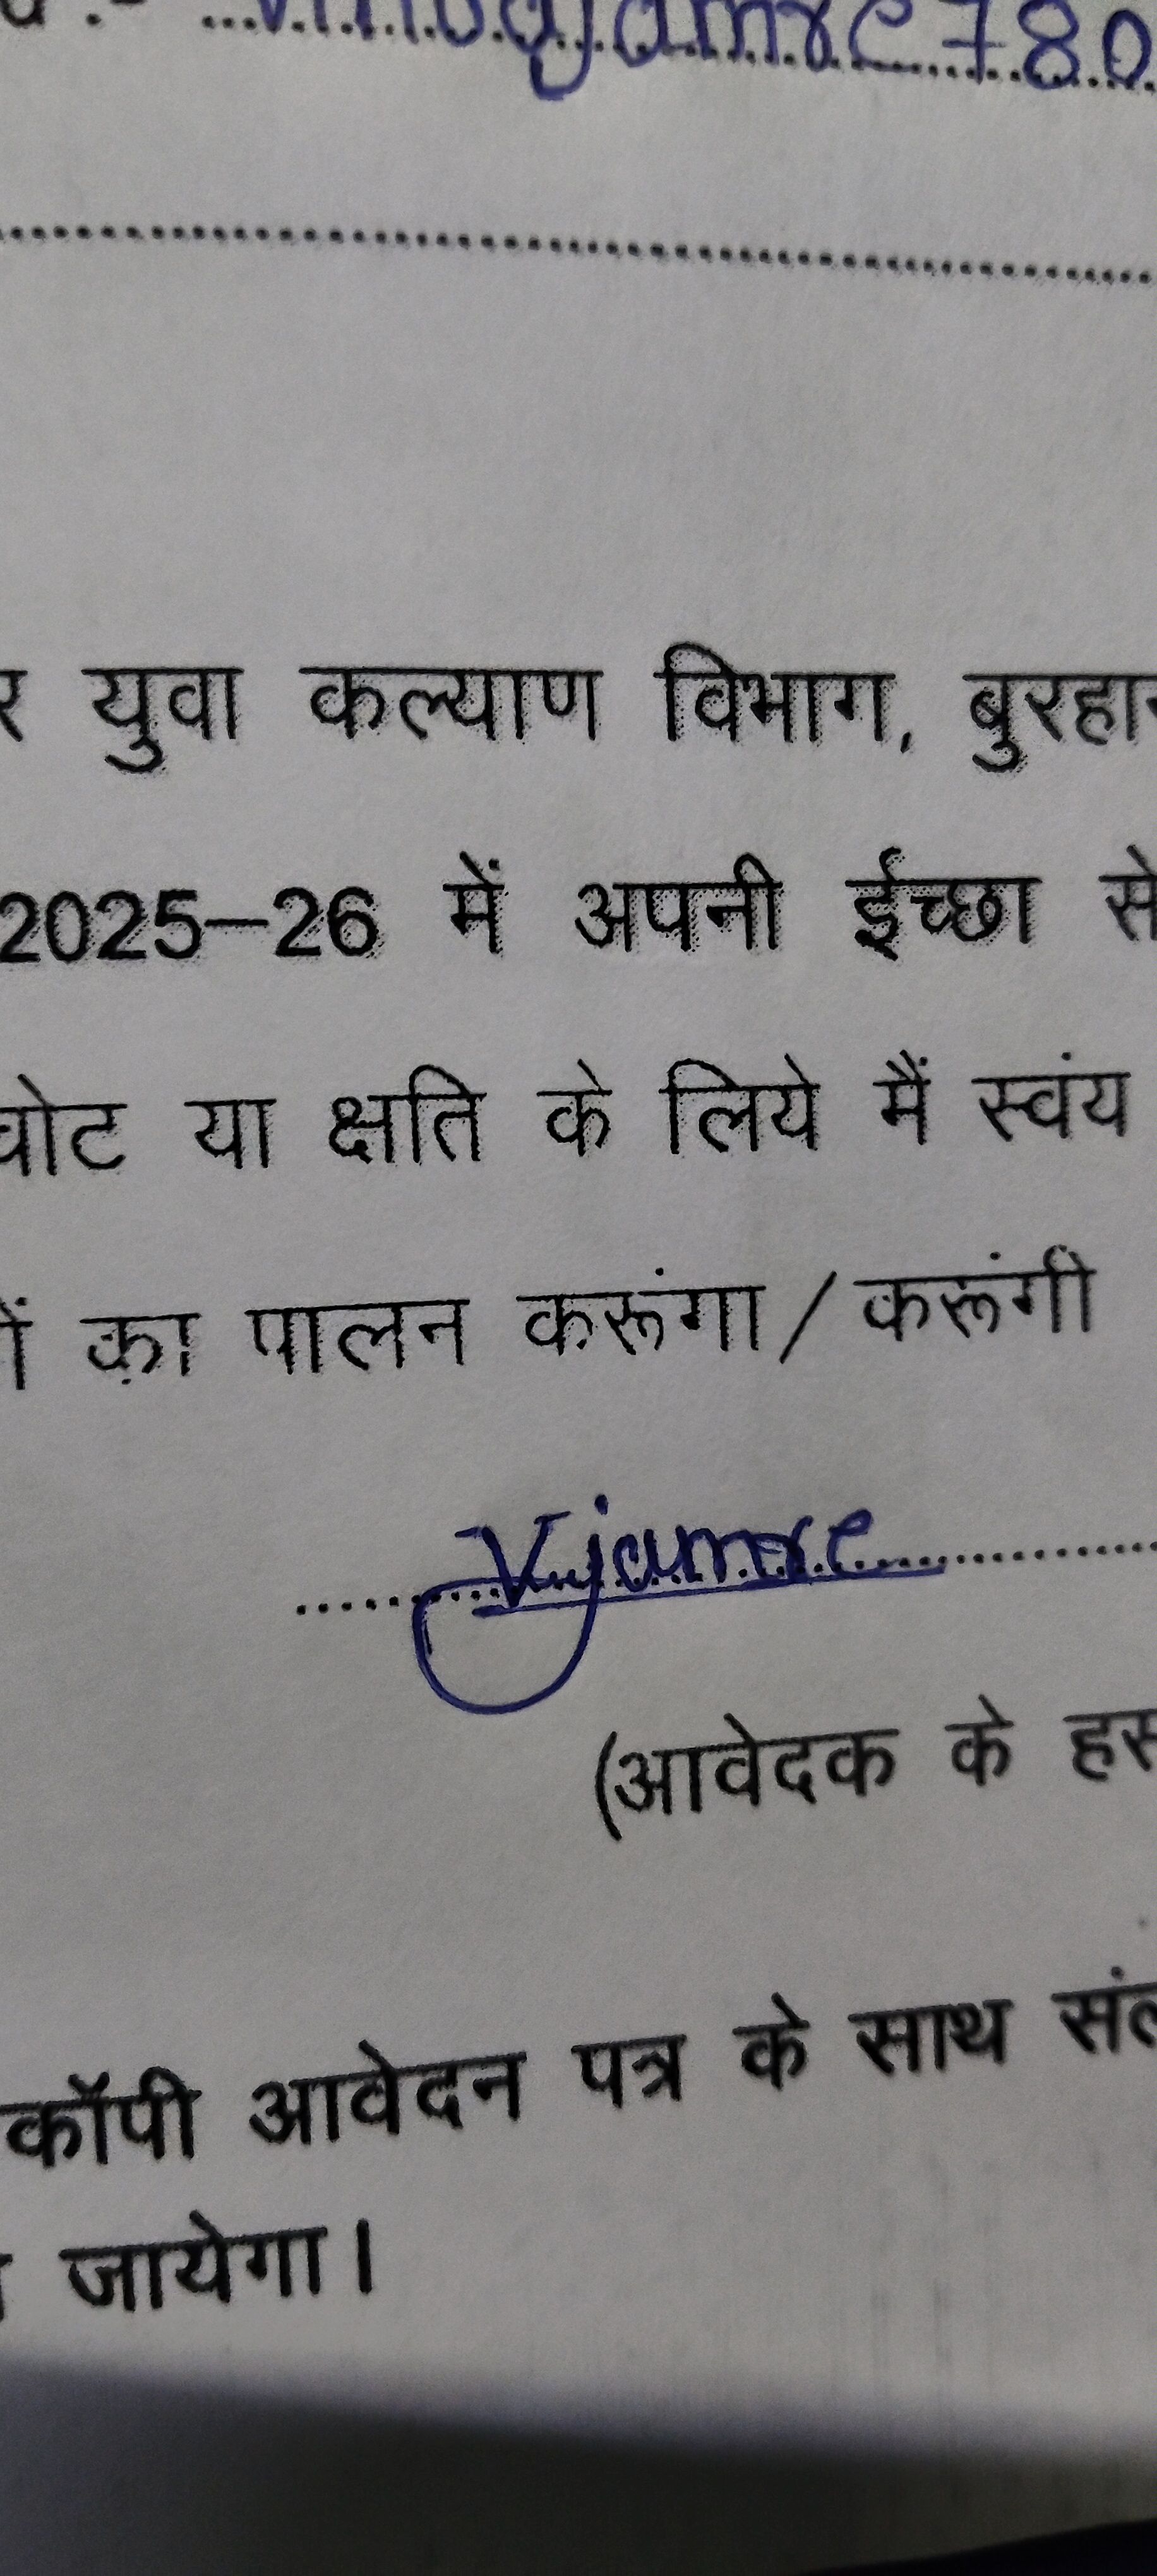 युवा कल्याण विभाग, बुरहान
2025–26 में अपनी ईच्छा से
चोट या क्षति के लिये मैं स्वंय
का पालन करूंगा/करूंगी
Vjamre
(आवेदक के हस
कॉपी आवेदन पत्र के साथ संल
जायेगा।